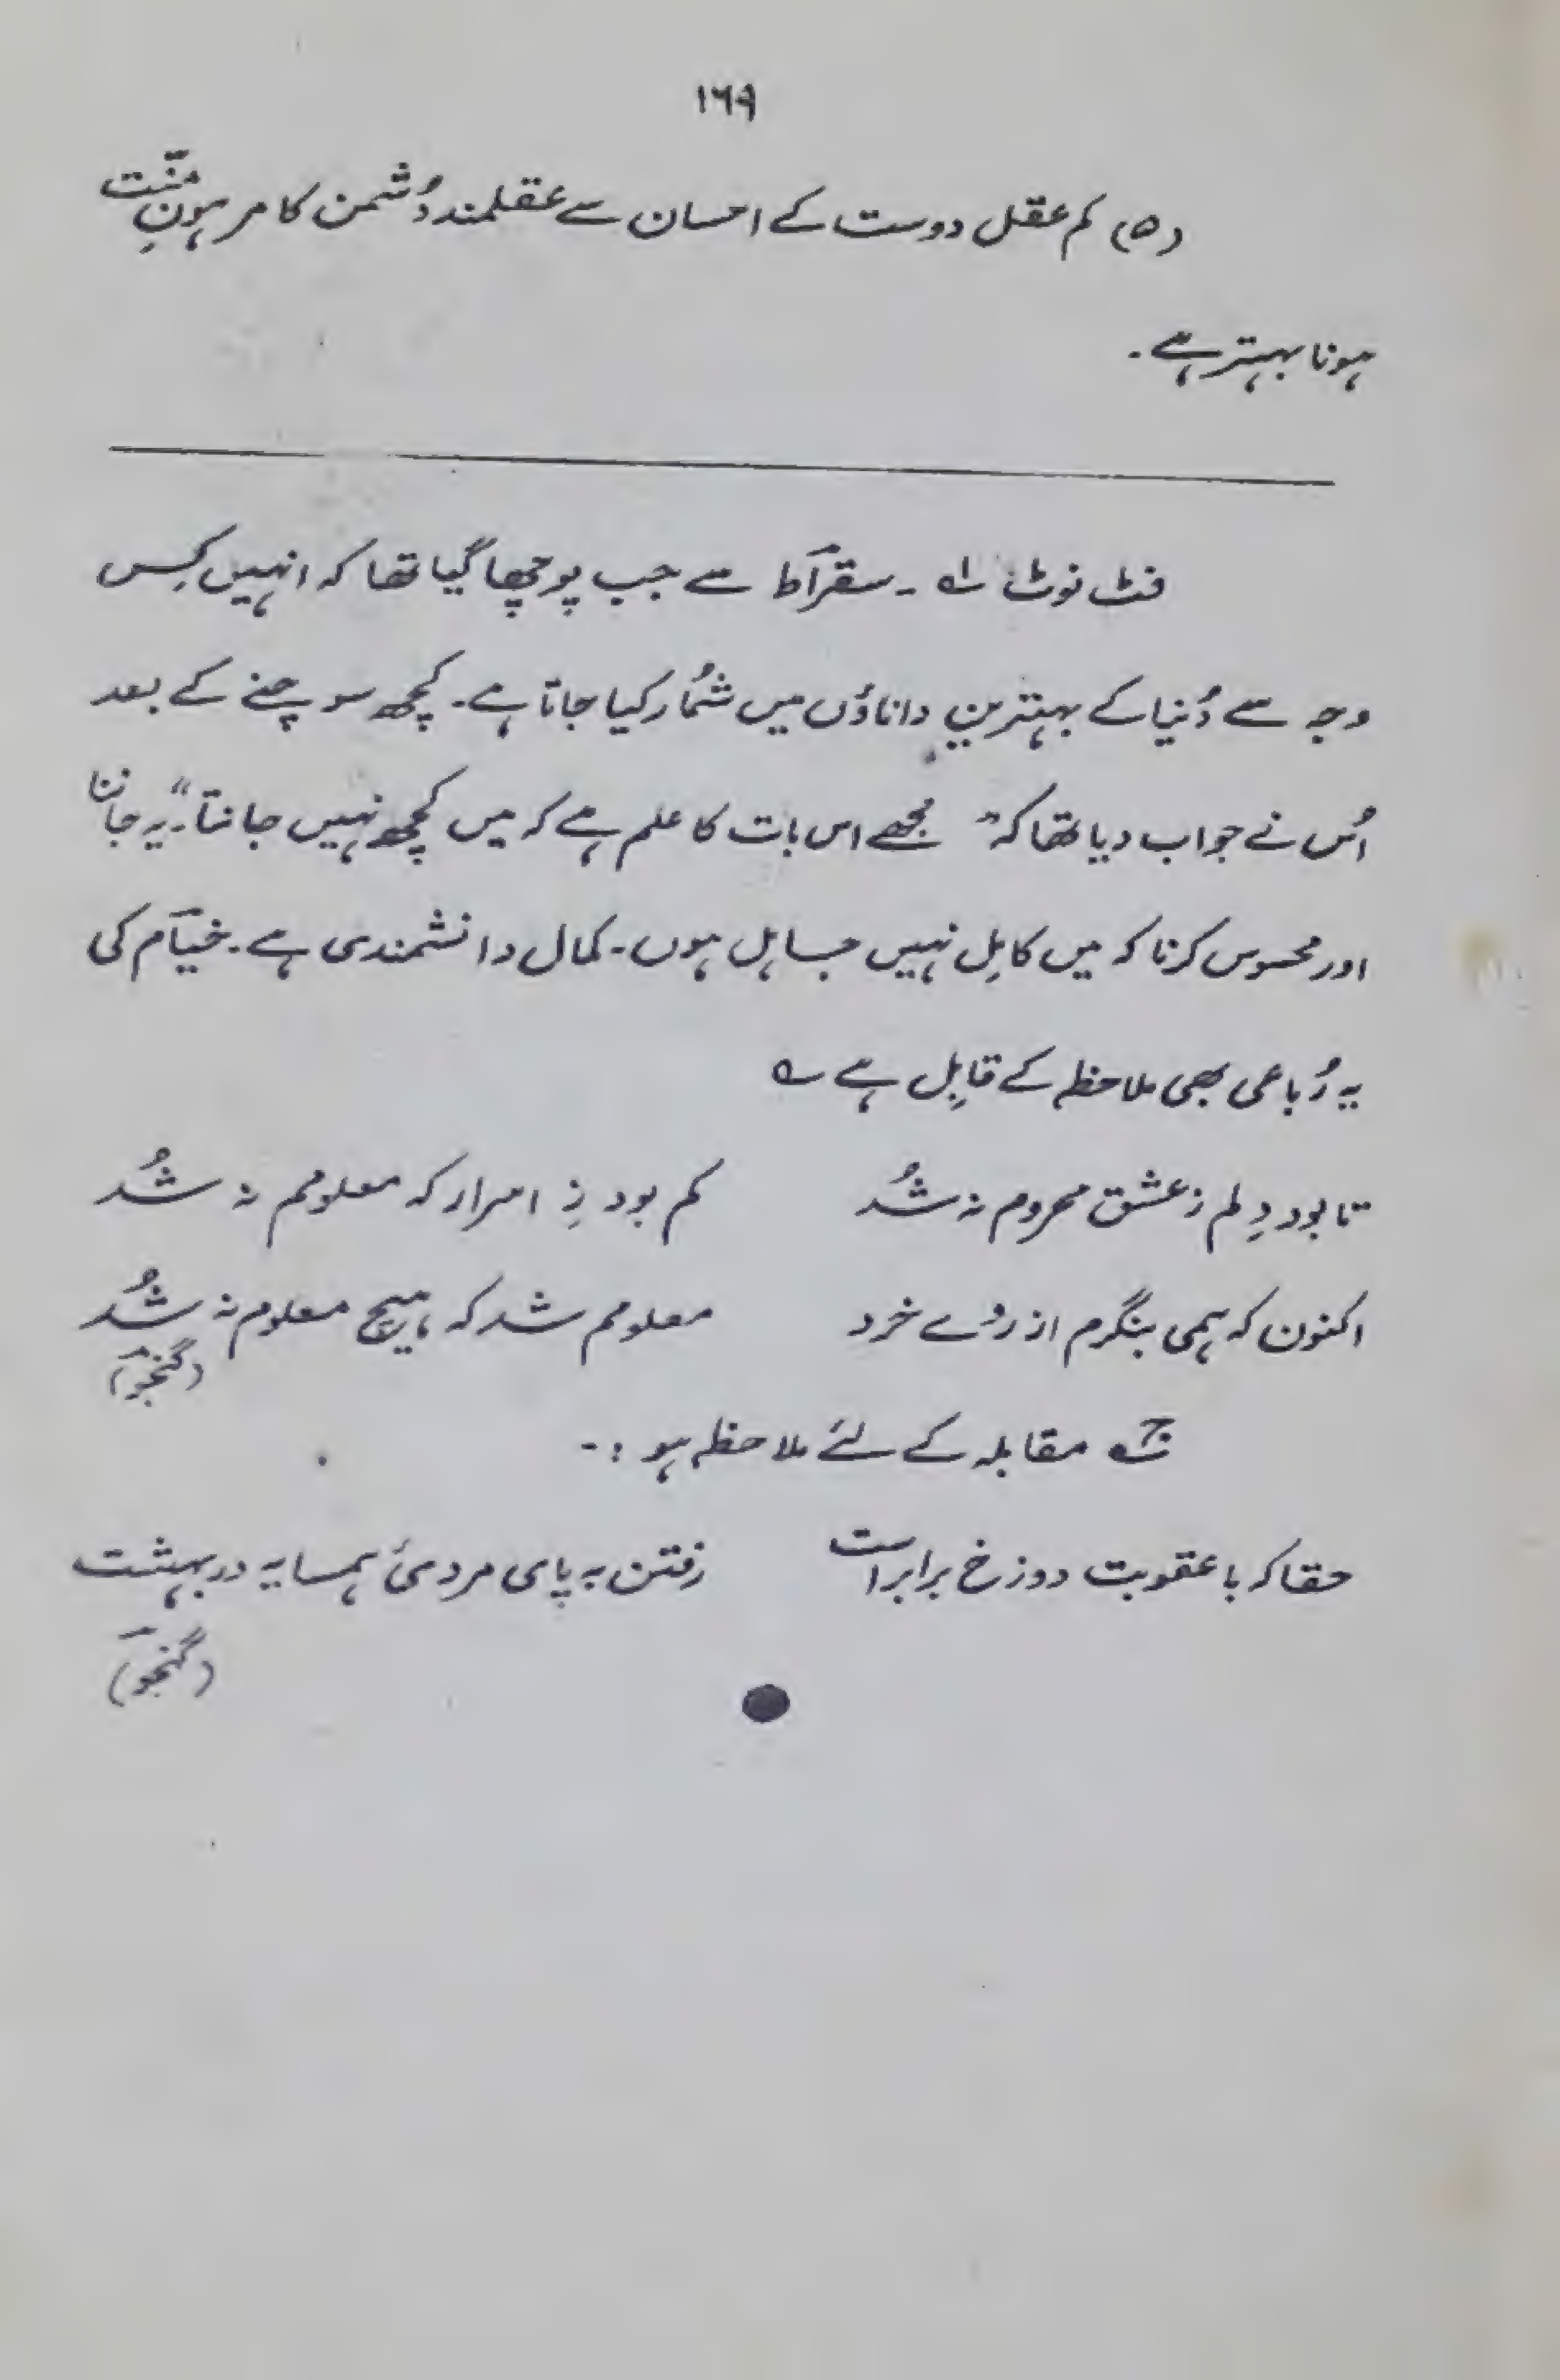 ۱۶۹
(۵) کم عقل دوست کے احسان سے عقلمند دُشمن کا مرہونِ منّت
ہونا بہتر ہے۔
فٹ نوٹ ۱؎ ۔ سقراط سے جب پوچھا گیا تھا کہ انہیں کِس
وجہ سے دُنیا کے بہترین داناؤں میں شُمار کیا جاتا ہے۔ کچھ سوچنے کے بعد
اُس نے جواب دیا تھا کہ " مجھے اس بات کا علم ہے کہ میں کچھ نہیں جانتا"۔ یہ جاننا
اور محسوس کرنا کہ میں کامِل نہیں جاہل ہوں۔ کمال دانشمندی ہے۔ خیام کی
یہ رُباعی بھی ملاحظہ کے قابِل ہے ؎
تا بود دِلم ز عشق محروم نہ شُد کم بود زِ اسرار کہ معلومم نہ شُد
اکنون کہ ہمی بنگرم از روُے خرد معلومم شد کہ ہیچ معلوم نہ شُد
(گنجو)
مقابلہ کے لئے ملاحظہ ہو :-
حقا کہ با عقوبت دوزخ برابر است رفتن بہ پای مردیٔ ہمسایہ در بہشت
(گنجو)